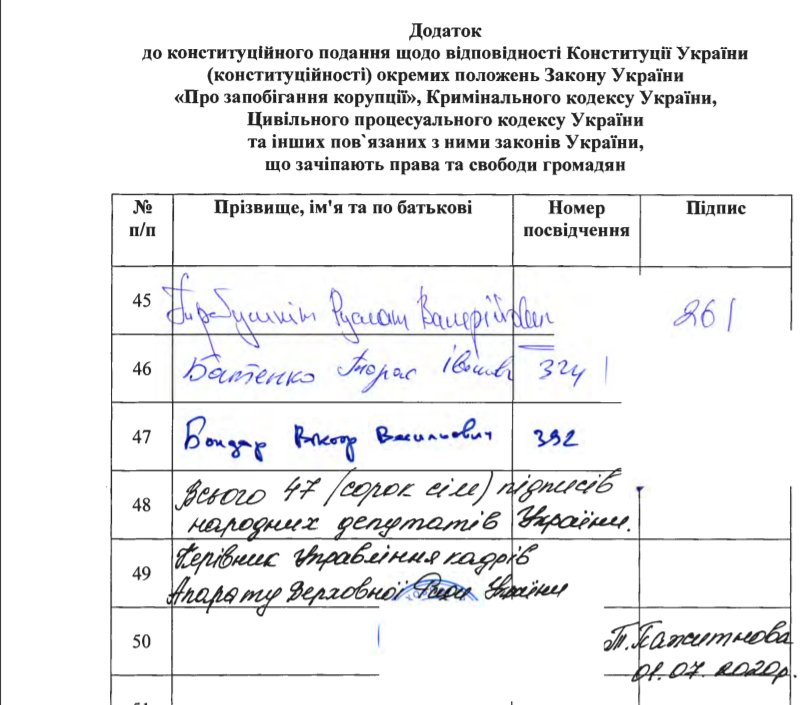 Додаток
до конституційного подання щодо відповідності Конституції України
(конституційності) окремих положень Закону України
«Про запобігання корупції», Кримінального кодексу України,
Цивільного процесуального кодексу України
та інших пов`язаних з ними законів України,
що зачіпають права та свободи громадян
№ п/п Прізвище, ім'я та по батькові Номер посвідчення Підпис
45 Руслан 261
46 Батенко Тарас 324
47 Бондар Віктор Васильович 392
48 Всього 47 (сорок сім) підписів
народних депутатів України.
49 Керівник Управління кадрів
Апарату Верховної Ради України
50 Т. Пажитнова
01.07.2020р.